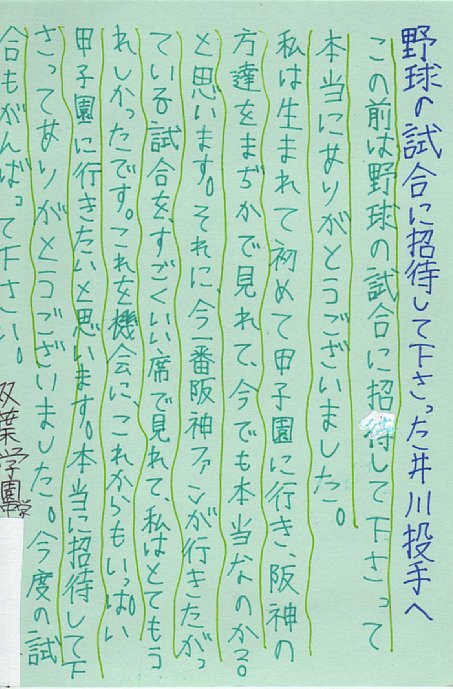 野球の試合に招待して下さった井川投手へ
この前は野球の試合に招待して下さって
本当にありがとうございました。
私は生まれて初めて甲子園に行き、阪神の
方達をまぢかで見れて、今でも本当なのか?。
と思います。それに、今一番阪神ファンが行きたがっ
ている試合を、すごくいい席で見れて、私はとてもう
れしかったです。これを機会に、これからもいっぱい
甲子園に行きたいと思います。本当に招待して下
さってありがとうございました。今度の試
合もがんばって下さい。
双葉学園